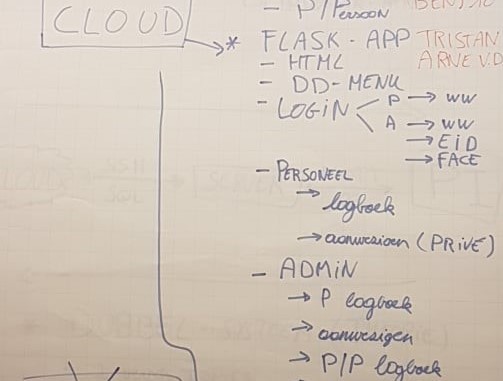 - P/Persoon
CLOUD
* FLASK-APP TRISTAN
- HTML ARNE V.D
- DD-MENU
- LOGIN P → WW
A → WW
→ EID
→ FACE
- PERSONEEL
→ logboek
→ aanwezigen (PRIVÉ)
- ADMIN
→ P logboek
→ aanwezigen
→ P/P logboek